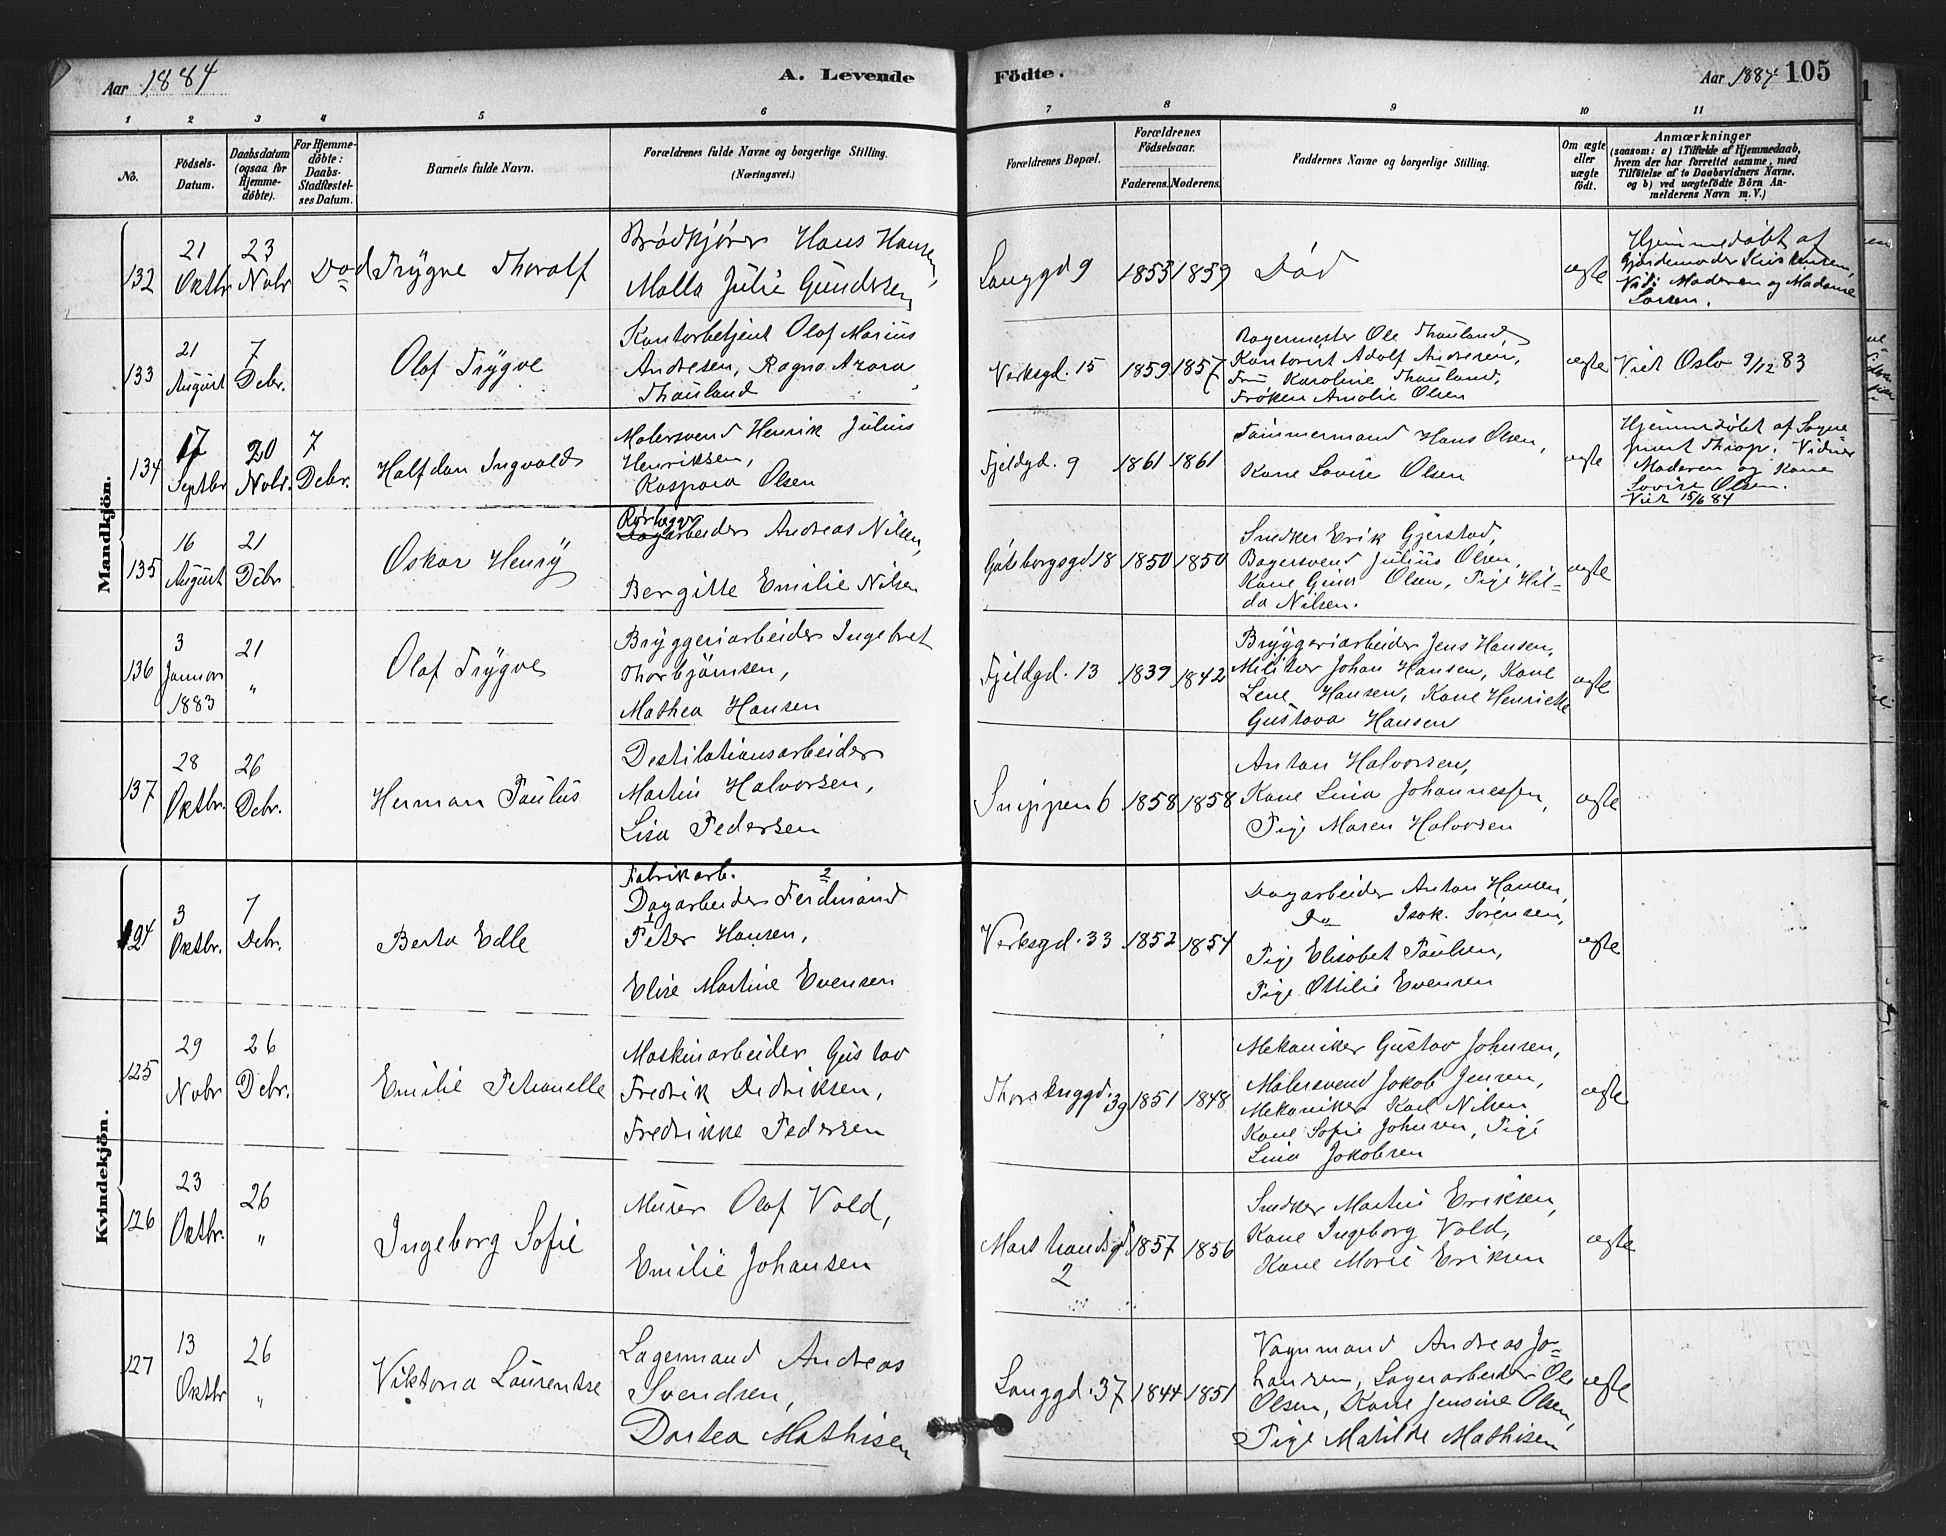 Aar 1884
A. Levende
Födte.
Aar 1884
105
1 2 3 4 5 6 7 8 9 10 11
No.
Födsels-
Datum.
Daabsdatum
(ogsaa for
Hjemme-
døbte).
For Hjemme-
døbte:
Daabs-
Stadfæstel-
ses Datum.
Barnets fulde Navn.
Forældrenes fulde Navne og borgerlige Stilling.
(Næringsvei.)
Forældrenes Bopæl.
Forældrenes
Födselsaar.
Faderens. Moderens.
Faddernes Navne og borgerlige Stilling.
Om ægte
eller
uægte
födt.
Anmærkninger
(saasom: a) i Tilfælde af Hjemmedaab,
hvem der har forrettet samme, med
Tilføielse af to Daabsvidners Navne.
og b) ved uægtefödte Börn An-
melderens Navn m. V.)
Mandkjön.
132
21
Oktbr
23
Nobr
Død
Trygve Thoralf
Brødkjører Hans Hansen,
Malla Julie Gundersen
Langgd 9
1855
1859
Død
ægte
Hjemmedøbt af
Gjordemoder Kristensen,
Vid: Moderen og Madame
Larsen.
133
21
August
7
Debr.
Olaf Trygve
Kontorbetjent Olaf Marius
Andresen, Ragna Azora
Thauland
Verksgd. 15
1859
1857
Bagermester Ole Thauland,
Kontorist Adolf Andresen,
Fru Karoline Thauland,
Frøken Amalie Olsen
ægte
Viet Oslo 9/12 83
134
17
Septbr
20
Nobr.
7
Debr.
Halfdan Ingvald
Malersvend Henrik Julius
Henriksen,
Kaspara Olsen
Fjeldgd. 9
1861
1861
Tømmermand Hans Olsen,
Kone Lovise Olsen
ægte
Hjemmedøbt af Sogne
prest Thrap. Vidner
Moderen og Kone
Lovise Olsen.
Viet 15/6 84
135
16
August
21
Debr
Oskar Henry
Rørlægger
Dagarbeider Andreas Nilsen,
Bergitte Emilie Nilsen
Gøteborgsgd 18
1850
1850
Snedker Erik Gjerstad,
Bagersvend Julius Olsen,
Kone Gina Olsen, Pige Hil-
da Nilsen.
ægte
136
3
Januar
1883
21
"
Olaf Trygve
Bryggeriarbeider Ingebret
Thorbjørnsen,
Mathea Hansen
Fjeldgd. 13
1839
1842
Bryggeriarbeider Jens Hansen,
Militær Johan Hansen, Kone
Lene Hansen, Kone Henriette
Gustava Hansen
ægte
137
28
Oktbr.
26
Debr.
Herman Paulus
Destilationsarbeider
Martin Halvorsen,
Lisa Pedersen
Snippen 6
1858
1858
Anton Halvorsen,
Kone Lina Johannessen,
Pige Maren Halvorsen
ægte
Kvindekjön.
124
3
Oktbr.
7
Debr.
Berta Edle
Fabrikarb. 2
Dagarbeider Ferdinand
1
Peter Hansen,
Elise Martine Evensen
Verksgd. 33
1852
1854
Dagarbeider Anton Hansen,
Do Isak. Sørensen,
Pige Elisabet Paulsen,
Pige Ottilie Evensen
ægte
125
29
Nobr
26
Debr.
Emilie Petronelle
Maskinarbeider Gustav
Fredrik Didriksen,
Fredrikke Pedersen
Thorsnæsgd. 39
1851
1848
Mekaniker Gustav Johnsen,
Malersvend Jakob Jensen,
Mekaniker Karl Nilsen
Kone Sofie Johnsen, Pige
Lina Jakobsen
ægte
126
23
Oktbr.
26
"
Ingeborg Sofie
Murer Olaf Vold,
Emilie Johansen
Marstrandsgd
2
1857
1856
Snedker Martin Eriksen,
Kone Ingeborg Vold,
Kone Marie Eriksen
ægte
127
13
Oktbr
26
"
Viktoria Laurentse
Lagermand Andreas
Svendsen,
Dortea Mathisen
Langgd. 37
1844
1851
Vognmand Andreas Jo-
hansen, Lagerarbeider Ole
Olsen, Kone Jensine Olsen,
Pige Matilde Mathisen
ægte